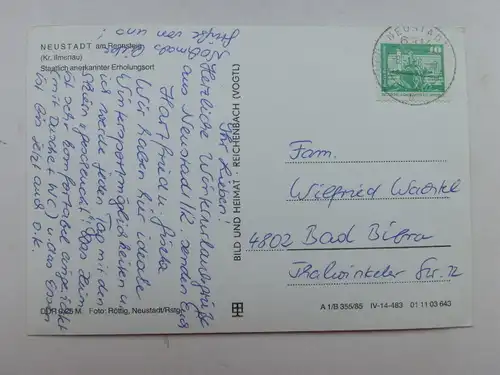 NEUSTADT am Rennsteig
(Kr. Ilmenau)
Staatlich anerkannter Erholungsort
Ihr Lieben!
Herzliche Winterurlaubsgrüße
aus Neustadt/R. senden Euch
Hartfried u.
Wir haben hier ideale
Wintersportmöglichkeiten u.
ich werde jeden Tag mit den
Skiern "gescheucht". Das Heim
ist sehr komfortabel eingerichtet
(mit Dusche + WC) u. das Essen
ist bis jetzt auch o.k.
Nochmals liebe
Grüße von uns!
DDR 0,25 M Foto: Röttig, Neustadt/Rstg.
BILD UND HEIMAT REICHENBACH (VOGTL)
A 1/B 355/85 IV-14-483 01 11 03 643
NEUSTADT
10
Fam.
Wilfried
4802 Bad Bibra
Thalwinkeler Str. 12